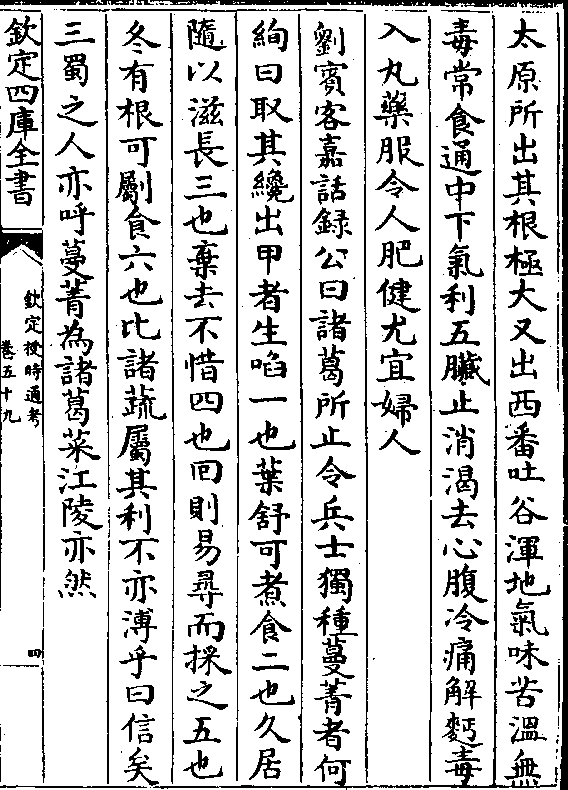 太原所出其根極大又出西番吐谷渾地氣味苦溫無
毒常食通中下氣利五臟止消渴去心腹冷痛解麪毒
入丸藥服令人肥健尤宜婦人
劉賓客嘉話録公曰諸葛所止令兵士獨種蔓菁者何
絢曰取其纔出甲者生啗一也葉舒可煮食二也久居
隨以滋長三也棄去不惜四也回則易尋而採之五也
冬有根可劚食六也比諸蔬屬其利不亦溥乎曰信矣
三蜀之人亦呼蔓菁為諸葛菜江陵亦然
欽定四庫全書
欽定授時通考
卷五十九
四